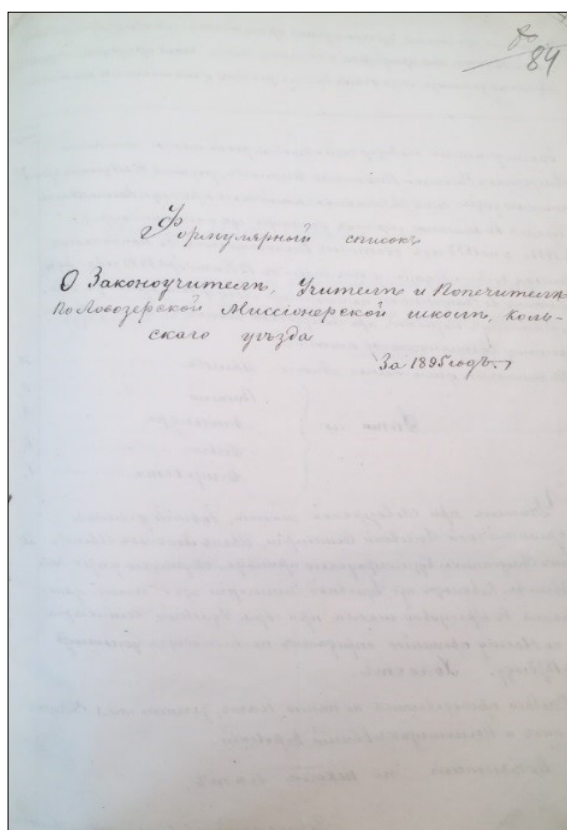 84
Формулярный списокъ
О Законоучителѣ, Учителѣ и Попечителѣ
По Ловозерской Миссіонерской школѣ, Коль-
скаго уѣзда
За 1895 годъ.